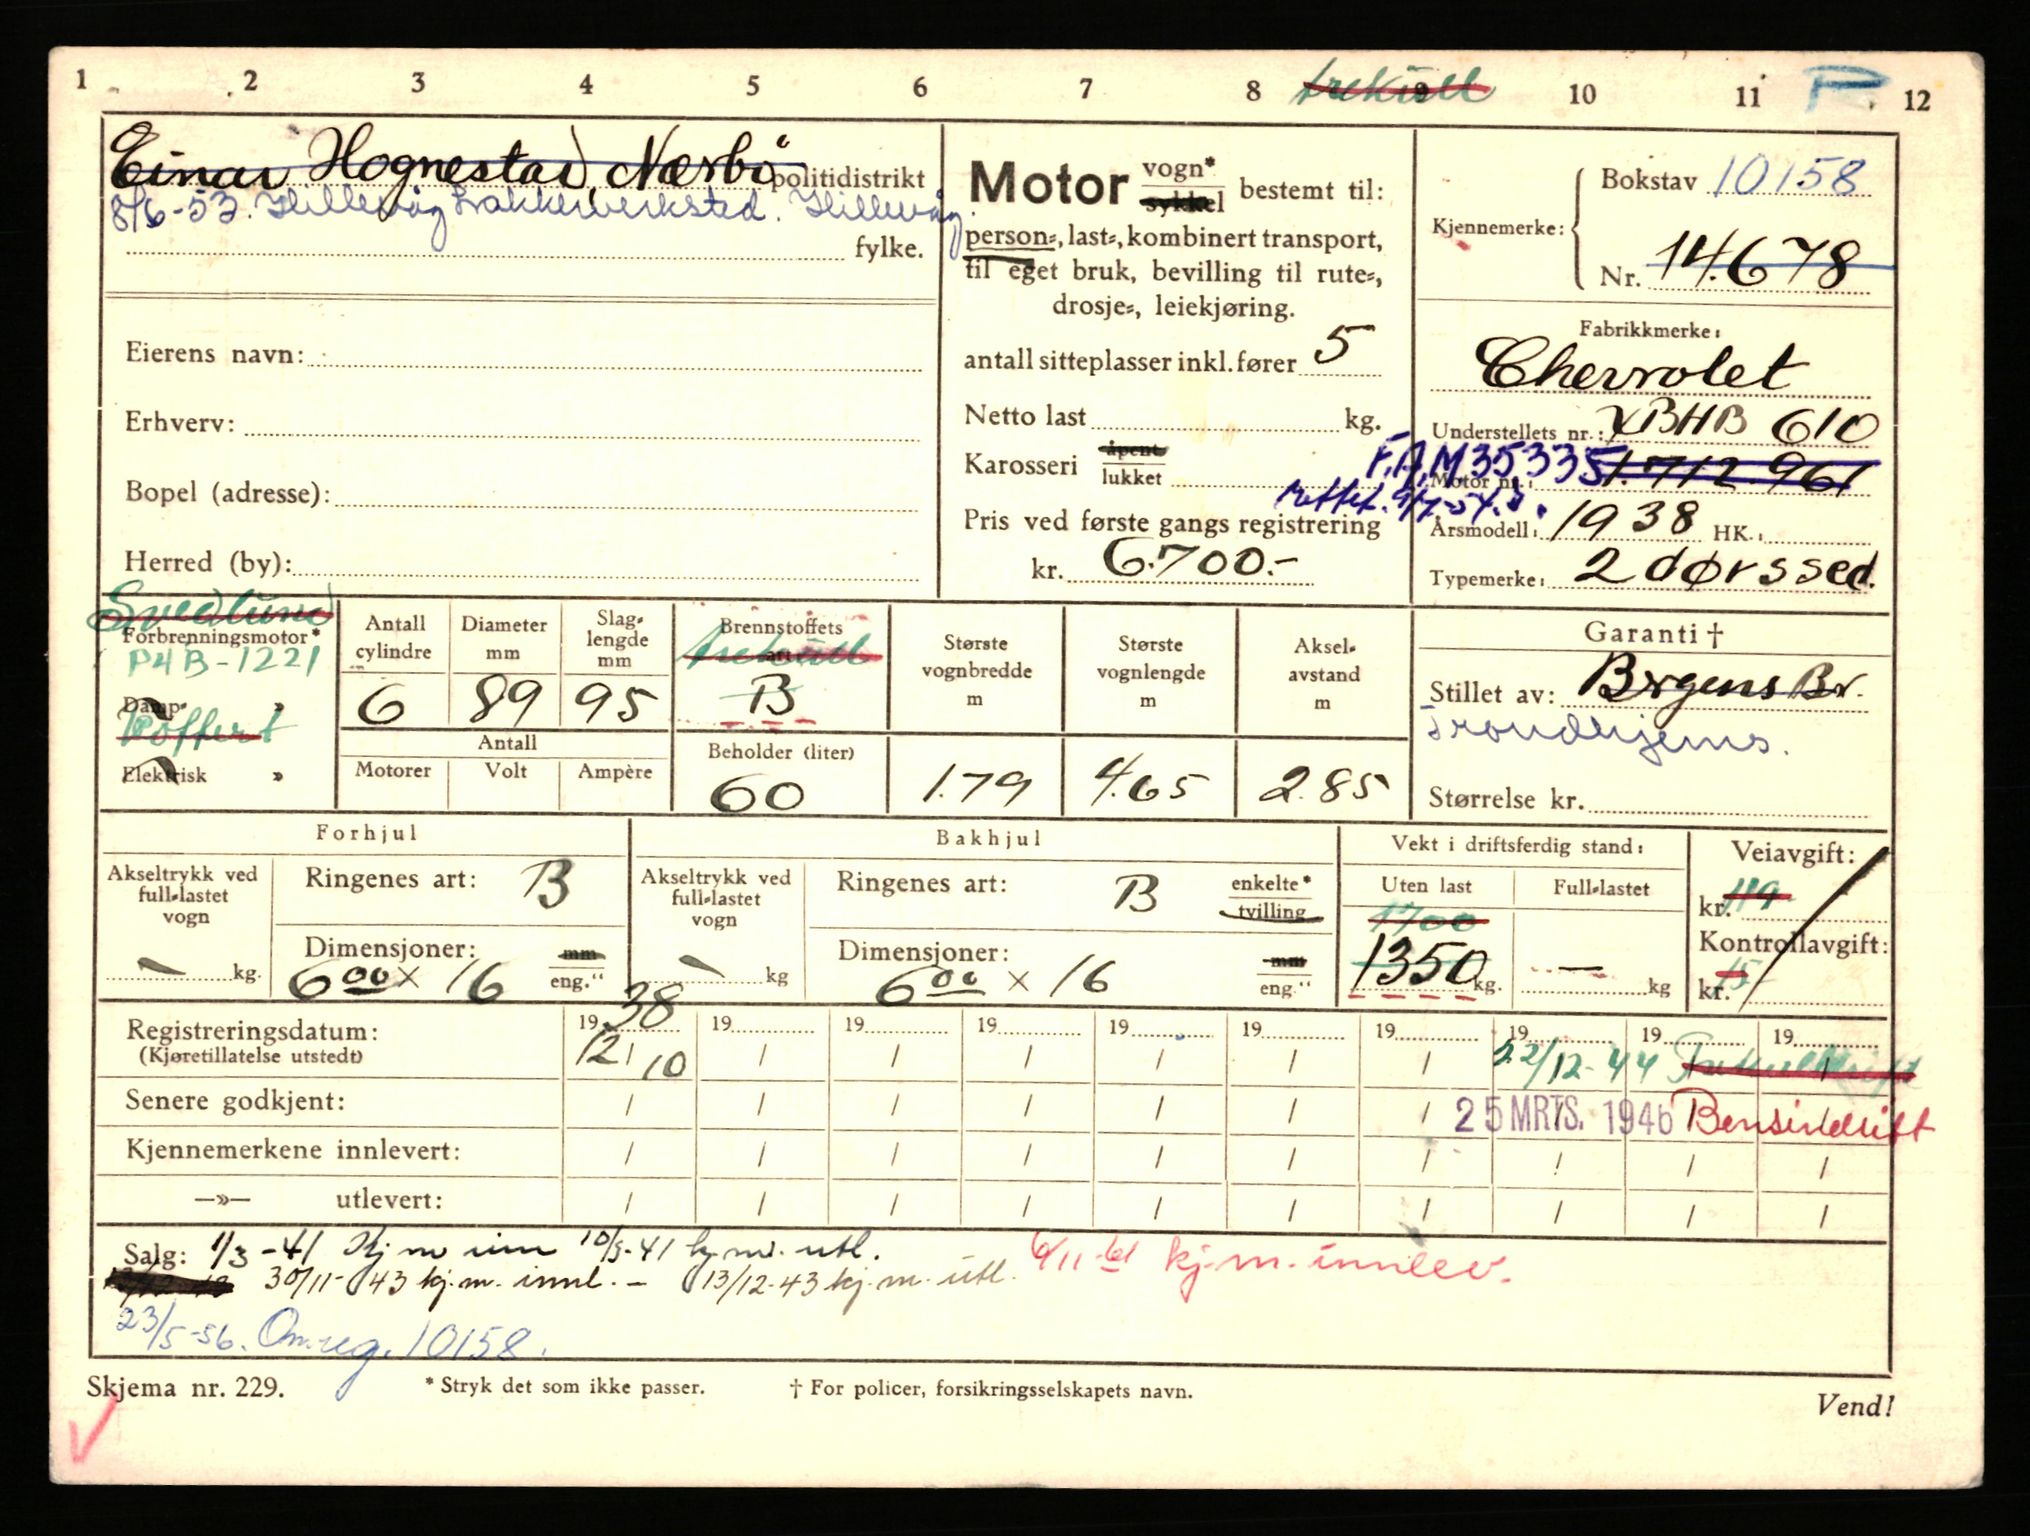 1 2 3 4 5 6 7 8 trekull 9 10 11 P 12
Einar Hognestad, Nærbö politidistrikt
8/6-53. Hillevåg Lakkverksted. Hillevåg.
fylke.
Eierens navn:
Erhverv:
Bopel (adresse):
Herred (by):
Motor vogn* sykkel bestemt til:
person-, last-, kombinert transport,
til eget bruk, bevilling til rute-,
drosje-, leiekjøring.
antall sitteplasser inkl. fører 5
Netto last kg.
Karosseri åpent lukket
Pris ved første gangs registrering
kr. 6.700.-
Kjennemerke:
Bokstav 10158
Nr. 14.678
Fabrikkmerke:
Chevrolet
Understellets nr.: XBHB 610
F.A.M 35335 1.712.961
Motor nr.:
rettet. 9/7-54.
Årsmodell: 1938 HK.:
Typemerke: 2 dørs sed.
Svedlund
Forbrenningsmotor*
P4B-1221
Damp- »
Koffert
Elektrisk »
Antall cylindre
6
Diameter mm
89
Slaglengde mm
95
Antall
Motorer Volt Ampère
Brennstoffets art
trekull
B
Beholder (liter)
60
Største vognbredde m
1.79
Største vognlengde m
4.65
Aksel-avstand m
2.85
Garanti †
Stillet av: Bergens Br.
Trondhjems.
Størrelse kr.
Forhjul
Akseltrykk ved full-lastet vogn
— kg.
Ringenes art: B
Dimensjoner: mm
6.00 x 16 eng."
Bakhjul
Akseltrykk ved full-lastet vogn
— kg
Ringenes art: B enkelte* tvilling
Dimensjoner: mm
6.00 x 16 eng."
Vekt i driftsferdig stand:
Uten last
1700
1350 kg.
Full-lastet
— kg
Veiavgift:
kr. 119
Kontrollavgift:
kr. 15
Registreringsdatum: 19 38 19 19 19 19 19 19 19 19 19
(Kjøretillatelse utstedt) 12/10 / / / / / / 22/12-44 Trekulldrift
Senere godkjent: / / / / / / / 25 MRTS. 1946 Bensindrift
Kjennemerkene innlevert: / / / / / / / / / /
—»— utlevert: / / / / / / / / / /
Salg: 1/3-41 Kj.m. inn 10/5-41 kj.m. utl. 6/11-61 kj.m. innlev.
30/11-43 kj.m. innl. - 13/12-43 kj.m. utl.
23/5-56. Omreg. 10158.
Skjema nr. 229. * Stryk det som ikke passer. † For policer, forsikringsselskapets navn.
Vend!